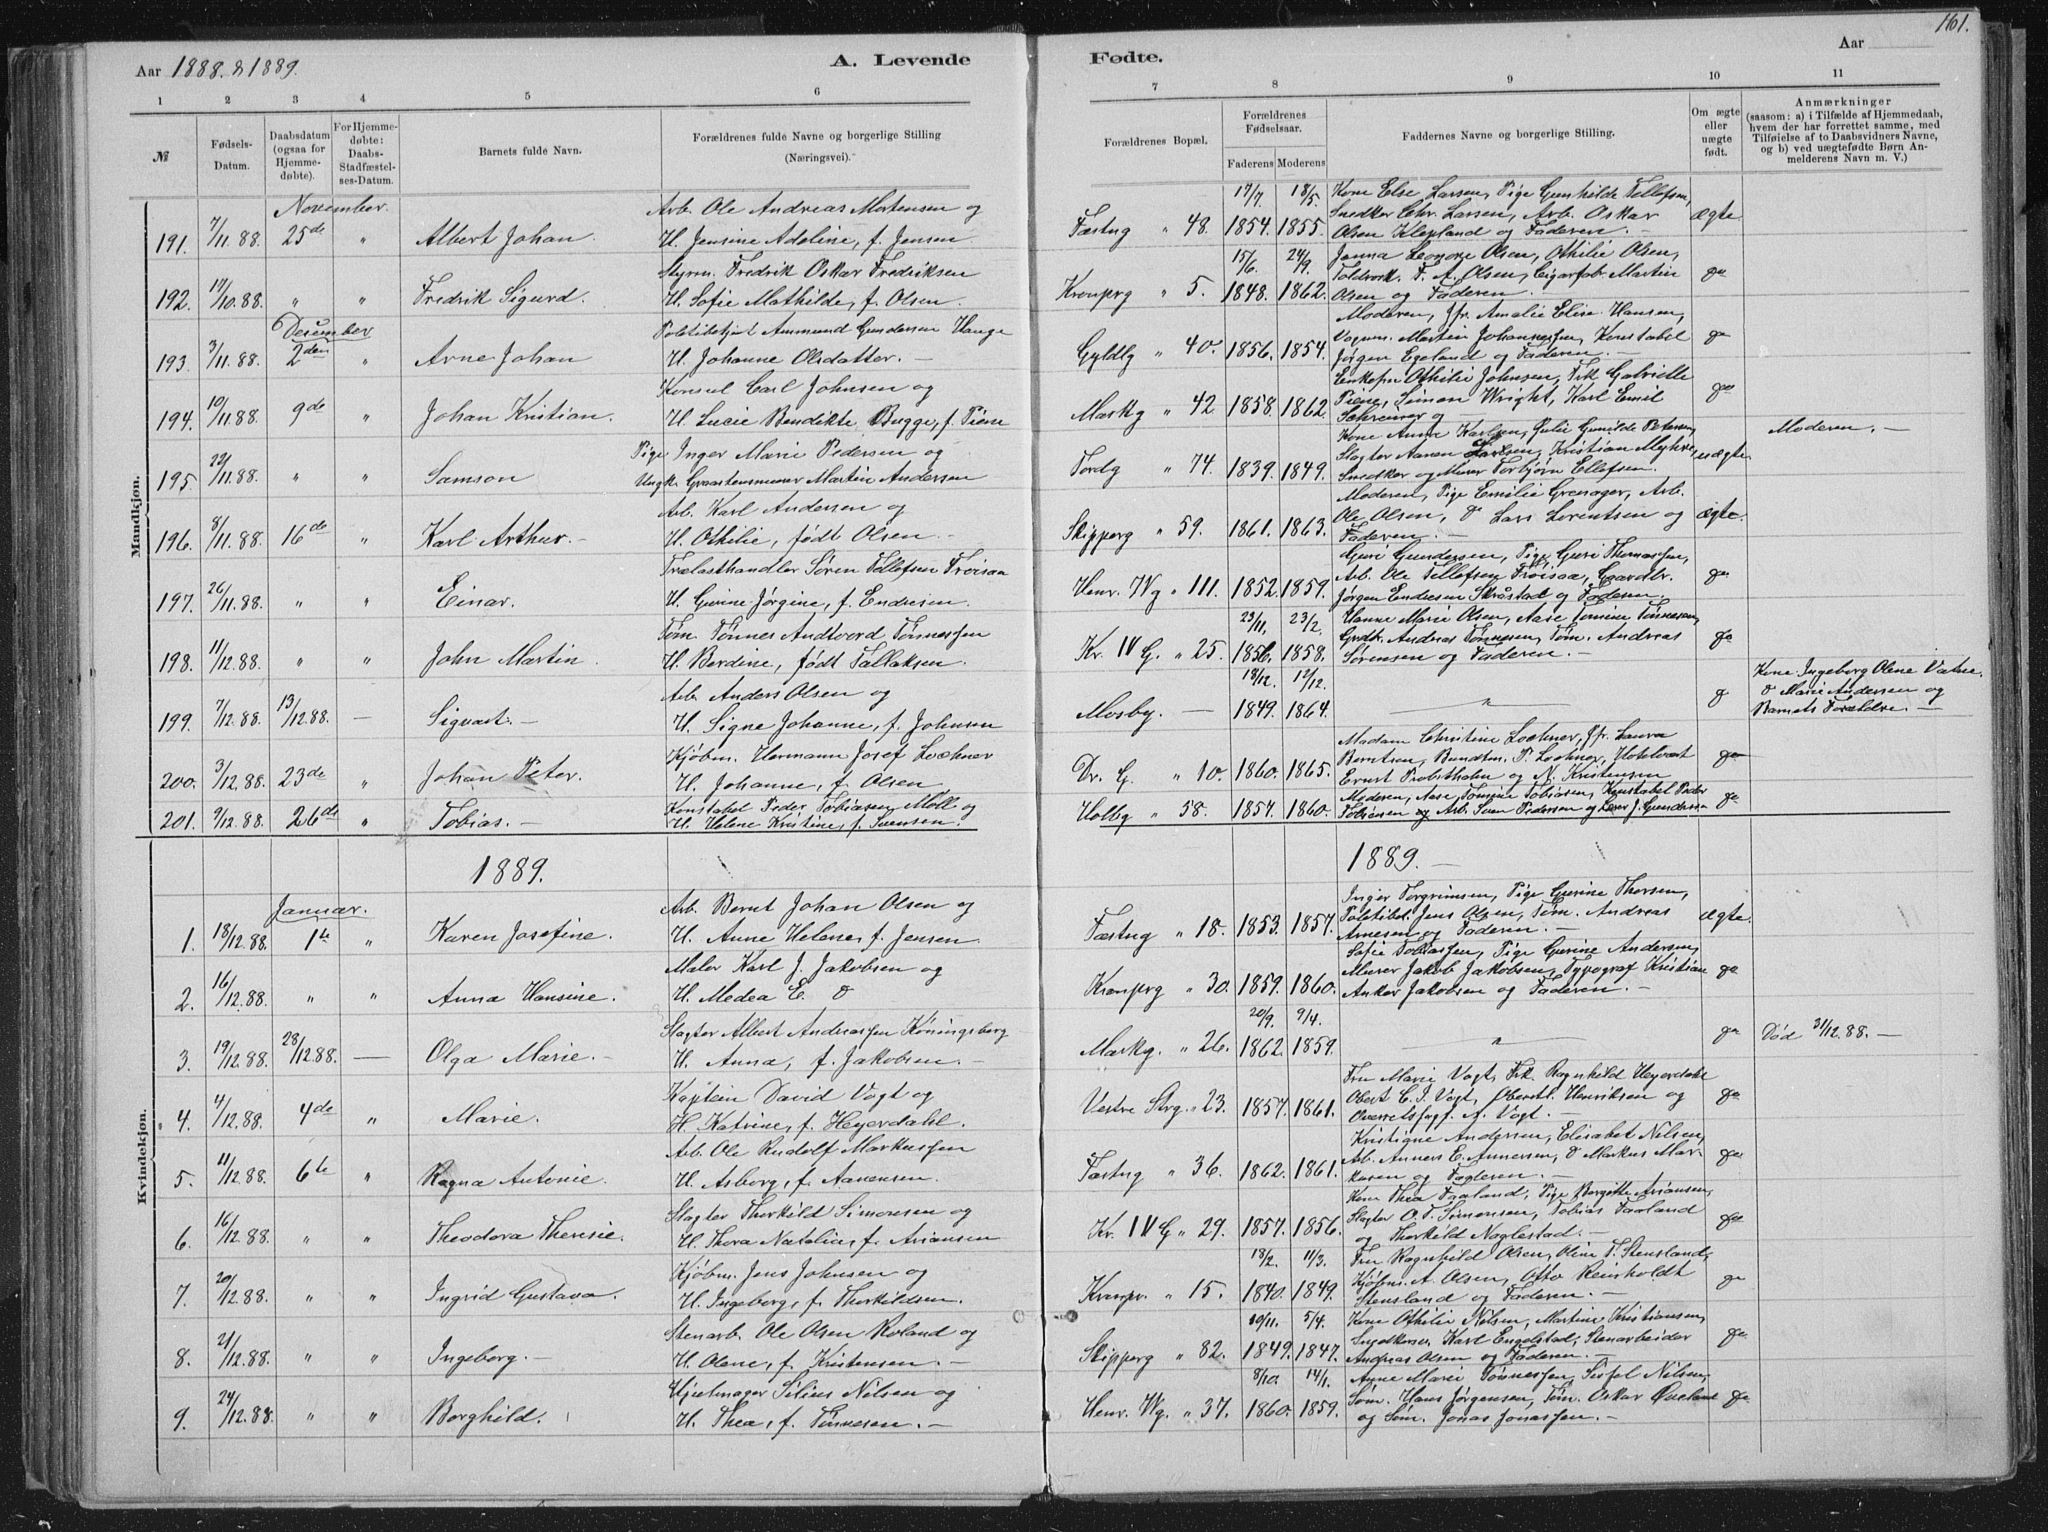 161.
Aar 1888. & 1889.
A. Levende
Fødte.
Aar
1 2 3 4 5 6
7 8 9 10 11
№
Fødsels-Datum.
Daabsdatum (ogsaa for Hjemme-døbte).
For Hjemme-døbte: Daabs-Stadfæstel-ses-Datum.
Barnets fulde Navn.
Forældrenes fulde Navne og borgerlige Stilling (Næringsvei).
Forældrenes Bopæl.
Forældrenes Fødselsaar.
Faderens Moderens
Faddernes Navne og borgerlige Stilling.
Om ægte eller uægte født.
Anmærkninger
(saasom: a) i Tilfælde af Hjemmedaab, hvem der har forrettet samme, med Tilføielse af to Daabsvidners Navne, og b) ved uægtefødte Børn Anmelderens Navn m. V.)
Mandkjøn.
November.
191. 7/11.88. 25de " Albert Johan.
Arb. Ole Andreas Mortensen og
H. Jensine Adeline, f. Jensen
Fæstng " 48. 17/7. 1854. 18/5. 1855.
Kone Else Larsen, Pige Gunhilde Tellefsen,
Snedker Chr. Larsen, Arb. Oskar
Olsen Klepland og Faderen. —
ægte.
192. 17/10.88. " " Fredrik Sigurd.
Styrm. Fredrik Oskar Fredriksen
H. Sofie Mathilde, f. Olsen.
Kronprg " 5. 15/6. 1848. 24/9. 1862.
Janna Leonore Olsen, Othilie Olsen,
Toldrorsk. F. A. Olsen, Cigarfabr. Martin
Olsen og Faderen.
do
December
193. 3/11.88. 2den " Arne Johan
Politibetjent Ammund Gundersen Hauge
H. Johanne Olsdatter. —
Gyldlg " 40. 1856. 1854.
Moderen, Jfr. Amalie Elise Hansen,
Vognm. Martin Johannessen, Konstabel
Jørgen Egeland og Faderen. —
do
194. 10/11.88. 9de " Johan Kristian.
Konsul Carl Johnsen og
H. Lucie Bendikte Bugge, f. Piene
Markg " 42 1858. 1862.
Enkefru Othilie Johnsen, Frk Gabrielle
Piene, Simon Wright, Karl Emil
Schreiner og —
do
195. 22/11.88. " " Samson
Pige Inger Marie Pedersen og
Ungk. Graastensmurer Martin Andersen
Tordg " 74. 1839. 1849.
Kone Anne Karlsen, Julie Gunilde Petersen,
Slagter Aanen Larsen, Kristian Myhre,
Snedker og Murer Torbjørn Ellefsen.
uægte.
Moderen. —
196. 8/11.88. 16de " Karl Arthur. —
Arb. Karl Andersen og
H. Othilie, født Olsen. —
Skipperg " 59. 1861. 1863.
Moderen, Pige Emilie Grenager, Arb.
Ole Olsen, do Lars Lorentsen og
Faderen. —
ægte.
197. 26/11.88. " " Einar.
Trælasthandler Søren Tellefsen Froisaa
H. Gurine Jørgine, f. Endresen.
Henr. Wg " 111. 1852. 1859.
Guri Gundersen, Pige Guri Thomassen,
Arb. Ole Tellefsen Froisaa, Gaardbr.
Jørgen Endresen Skråstad og Faderen.
do
198. 11/12.88. " " John Martin.
Tøm. Tønnes Andtvord Tønnessen
H. Berdine, født Tallaksen.
Kr. IV G. " 25. 23/11. 1856. 23/2. 1858.
Hanne Marie Olsen, Aase Tomine Tønnesen,
Grdb. Andreas Tønnesen, Tøm. Andreas
Sørensen og Faderen. —
do
199. 7/12.88. 13/12.88. — Sigvart. —
Arb. Anders Olsen og
H. Signe Johanne, f. Johnsen
Mosby. — 18/12. 1849. 12/12. 1864.
"
do
Kone Ingeborg Olene Vatne.
do Marie Andersen og
Barnets Forældre. —
200. 3/12.88. 23de " Johan Peter.
Kjøbm. Hermann Josef Lochner
H. Johanne, f. Olsen
Dr. G. " 10. 1860. 1865.
Madam Christine Lochner, Jfr. Laura
Berntsen, Bundtm. P. Lochner, Hotelvært
Ernst Probsthahn og N. Kristensen
do
201. 9/12.88. 26de " Tobias. —
Konstabel Peder Tobiasen Moll og
H. Helene Kristine, f. Svensen.
Holbg " 58. 1857. 1860.
Moderen, Aase Tomine Tobiasen, Konstabel Peder
Tobiasen og Arb. Sven Pedersen og J. Gundersen
do
1889.
1889. —
Kvindekjøn.
Januar.
1. 18/12.88. 1te " Karen Josefine.
Arb. Bernt Johan Olsen og
H. Anne Helene, f. Jensen
Fæstng " 18. 1853. 1857.
Inger Torgrimsen, Pige Gurine Thorsen,
Politibt. Jens Olsen, Tøm. Andreas
Arnesen og Faderen. —
ægte.
2. 16/12.88. " " Anna Hansine.
Maler Karl J. Jakobsen og
H. Medea E. do
Kronprg " 30. 1859. 1860.
Sofie Tobiassen, Pige Gurine Andersen,
Murer Jakob Jakobsen, Typograf Kristian
Anker Jakobsen og Faderen. —
do
3. 19/12.88. 28/12.88. — Olga Marie. —
Slagter Albert Andreassen Köningsberg
H. Anna, f. Jakobsen. —
Markg. " 26. 20/9. 1862. 9/4. 1859.
"
do
Død 31/12.88. —
4. 4/12.88. 4de " Marie.
Kaptein David Vogt og
H. Katrine, f. Heyerdahl.
Vestre Strg. " 23. 1857. 1861.
Fru Marie Vogt, Frk. Ragnhild Heyerdahl
Oberst C. J. Vogt, Oberstl. Henriksen og
Overretssagf. A. Vogt. —
do
5. 11/12.88. 6te " Ragna Antonie.
Arb. Ole Rudolf Markussen
H. Asborg, f. Aanensen.
Fæstng " 36. 1862. 1861.
Kristiane Andersen, Elisabet Nilsen,
Arb. Anners E. Annersen, do Markus Mar-
kusen og Faderen. —
do
6. 16/12.88. " " Theodora Theresie.
Slagter Thorkild Simonsen og
H. Thora Natalia, f. Ariansen
Kr. IV G " 29. 1857. 1856.
Kone Thea Faaland, Pige Birgitte Ariansen,
Slagter O. T. Simonsen, Tobias Faaland
og Thorkild Naglestad. —
do
7. 20/12.88. " " Ingrid Gustava.
Kjøbm. Jens Johnsen og
H. Ingeborg, f. Thorkildsen.
Kronpr. " 15. 18/2. 1840. 11/3. 1849.
Fru Ragnhild Olsen, Oline T. Stensland,
Kjøbm. A. Olsen, Otto Reinholdt
Stensland og Faderen. —
do
8. 21/12.88. " " Ingeborg. —
Stenarb. Ole Olsen Roland og
H. Olene, f. Kristensen. —
Skipperg " 82. 10/11. 1849. 5/4. 1847.
Kone Othilie Nilsen, Martine Kristiansen,
Karl Engelstad, Stenarbeider
Andreas Olsen og Faderen. —
do
9. 24/12.88. " " Borghild.
Hjulmager Silius Nilsen og
H. Thea, f. Tønnesen. —
Henr. Wg. " 37. 8/10. 1860. 14/1. 1859.
Anne Marie Tønnessen, Sissel Nilsen,
Søm. Hans Jørgensen, Tøm. Oskar Qveland
og Søm. Jonas Jonassen. —
do